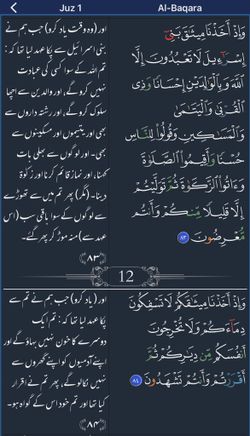 Juz 1
Al-Baqara
وَإِذْ أَخَذْنَا مِيثَٰقَ بَنِىٓ
إِسْرَٰٓءِيلَ لَا تَعْبُدُونَ إِلَّا
ٱللَّهَ وَبِٱلْوَٰلِدَيْنِ إِحْسَانًا وَذِى
ٱلْقُرْبَىٰ وَٱلْيَتَٰمَىٰ
وَٱلْمَسَٰكِينِ وَقُولُوا۟ لِلنَّاسِ
حُسْنًا وَأَقِيمُوا۟ ٱلصَّلَوٰةَ
وَءَاتُوا۟ ٱلزَّكَوٰةَ ثُمَّ تَوَلَّيْتُمْ
إِلَّا قَلِيلًا مِّنكُمْ وَأَنتُم
مُّعْرِضُونَ ٨٣
اور (وہ وقت یاد کرو) جب ہم نے
بنی اسرائیل سے پکا عہد لیا تھا کہ:
تم اللہ کے سوا کسی کی عبادت
نہیں کرو گے، اور والدین سے اچھا
سلوک کرو گے، اور رشتہ داروں سے
بھی اور یتیموں اور مسکینوں سے
بھی۔ اور لوگوں سے بھلی بات
کہنا، اور نماز قائم کرنا اور زکوٰۃ
دینا۔ (مگر) پھر تم میں سے تھوڑے
سے لوگوں کے سوا باقی سب (اس
عہد سے) منہ موڑ کر پھر گئے۔
﴿۸۳﴾
12
وَإِذْ أَخَذْنَا مِيثَٰقَكُمْ لَا تَسْفِكُونَ
دِمَآءَكُمْ وَلَا تُخْرِجُونَ
أَنفُسَكُم مِّن دِيَٰرِكُمْ ثُمَّ
أَقْرَرْتُمْ وَأَنتُمْ تَشْهَدُونَ ٨٤
اور (یاد کرو) جب ہم نے تم سے
پکا عہد لیا تھا کہ: تم ایک
دوسرے کا خون نہیں بہاؤ گے اور
اپنے آدمیوں کو اپنے گھروں سے
نہیں نکالو گے، پھر تم نے اقرار
کیا تھا اور تم خود اس کے گواہ ہو۔
﴿۸۴﴾